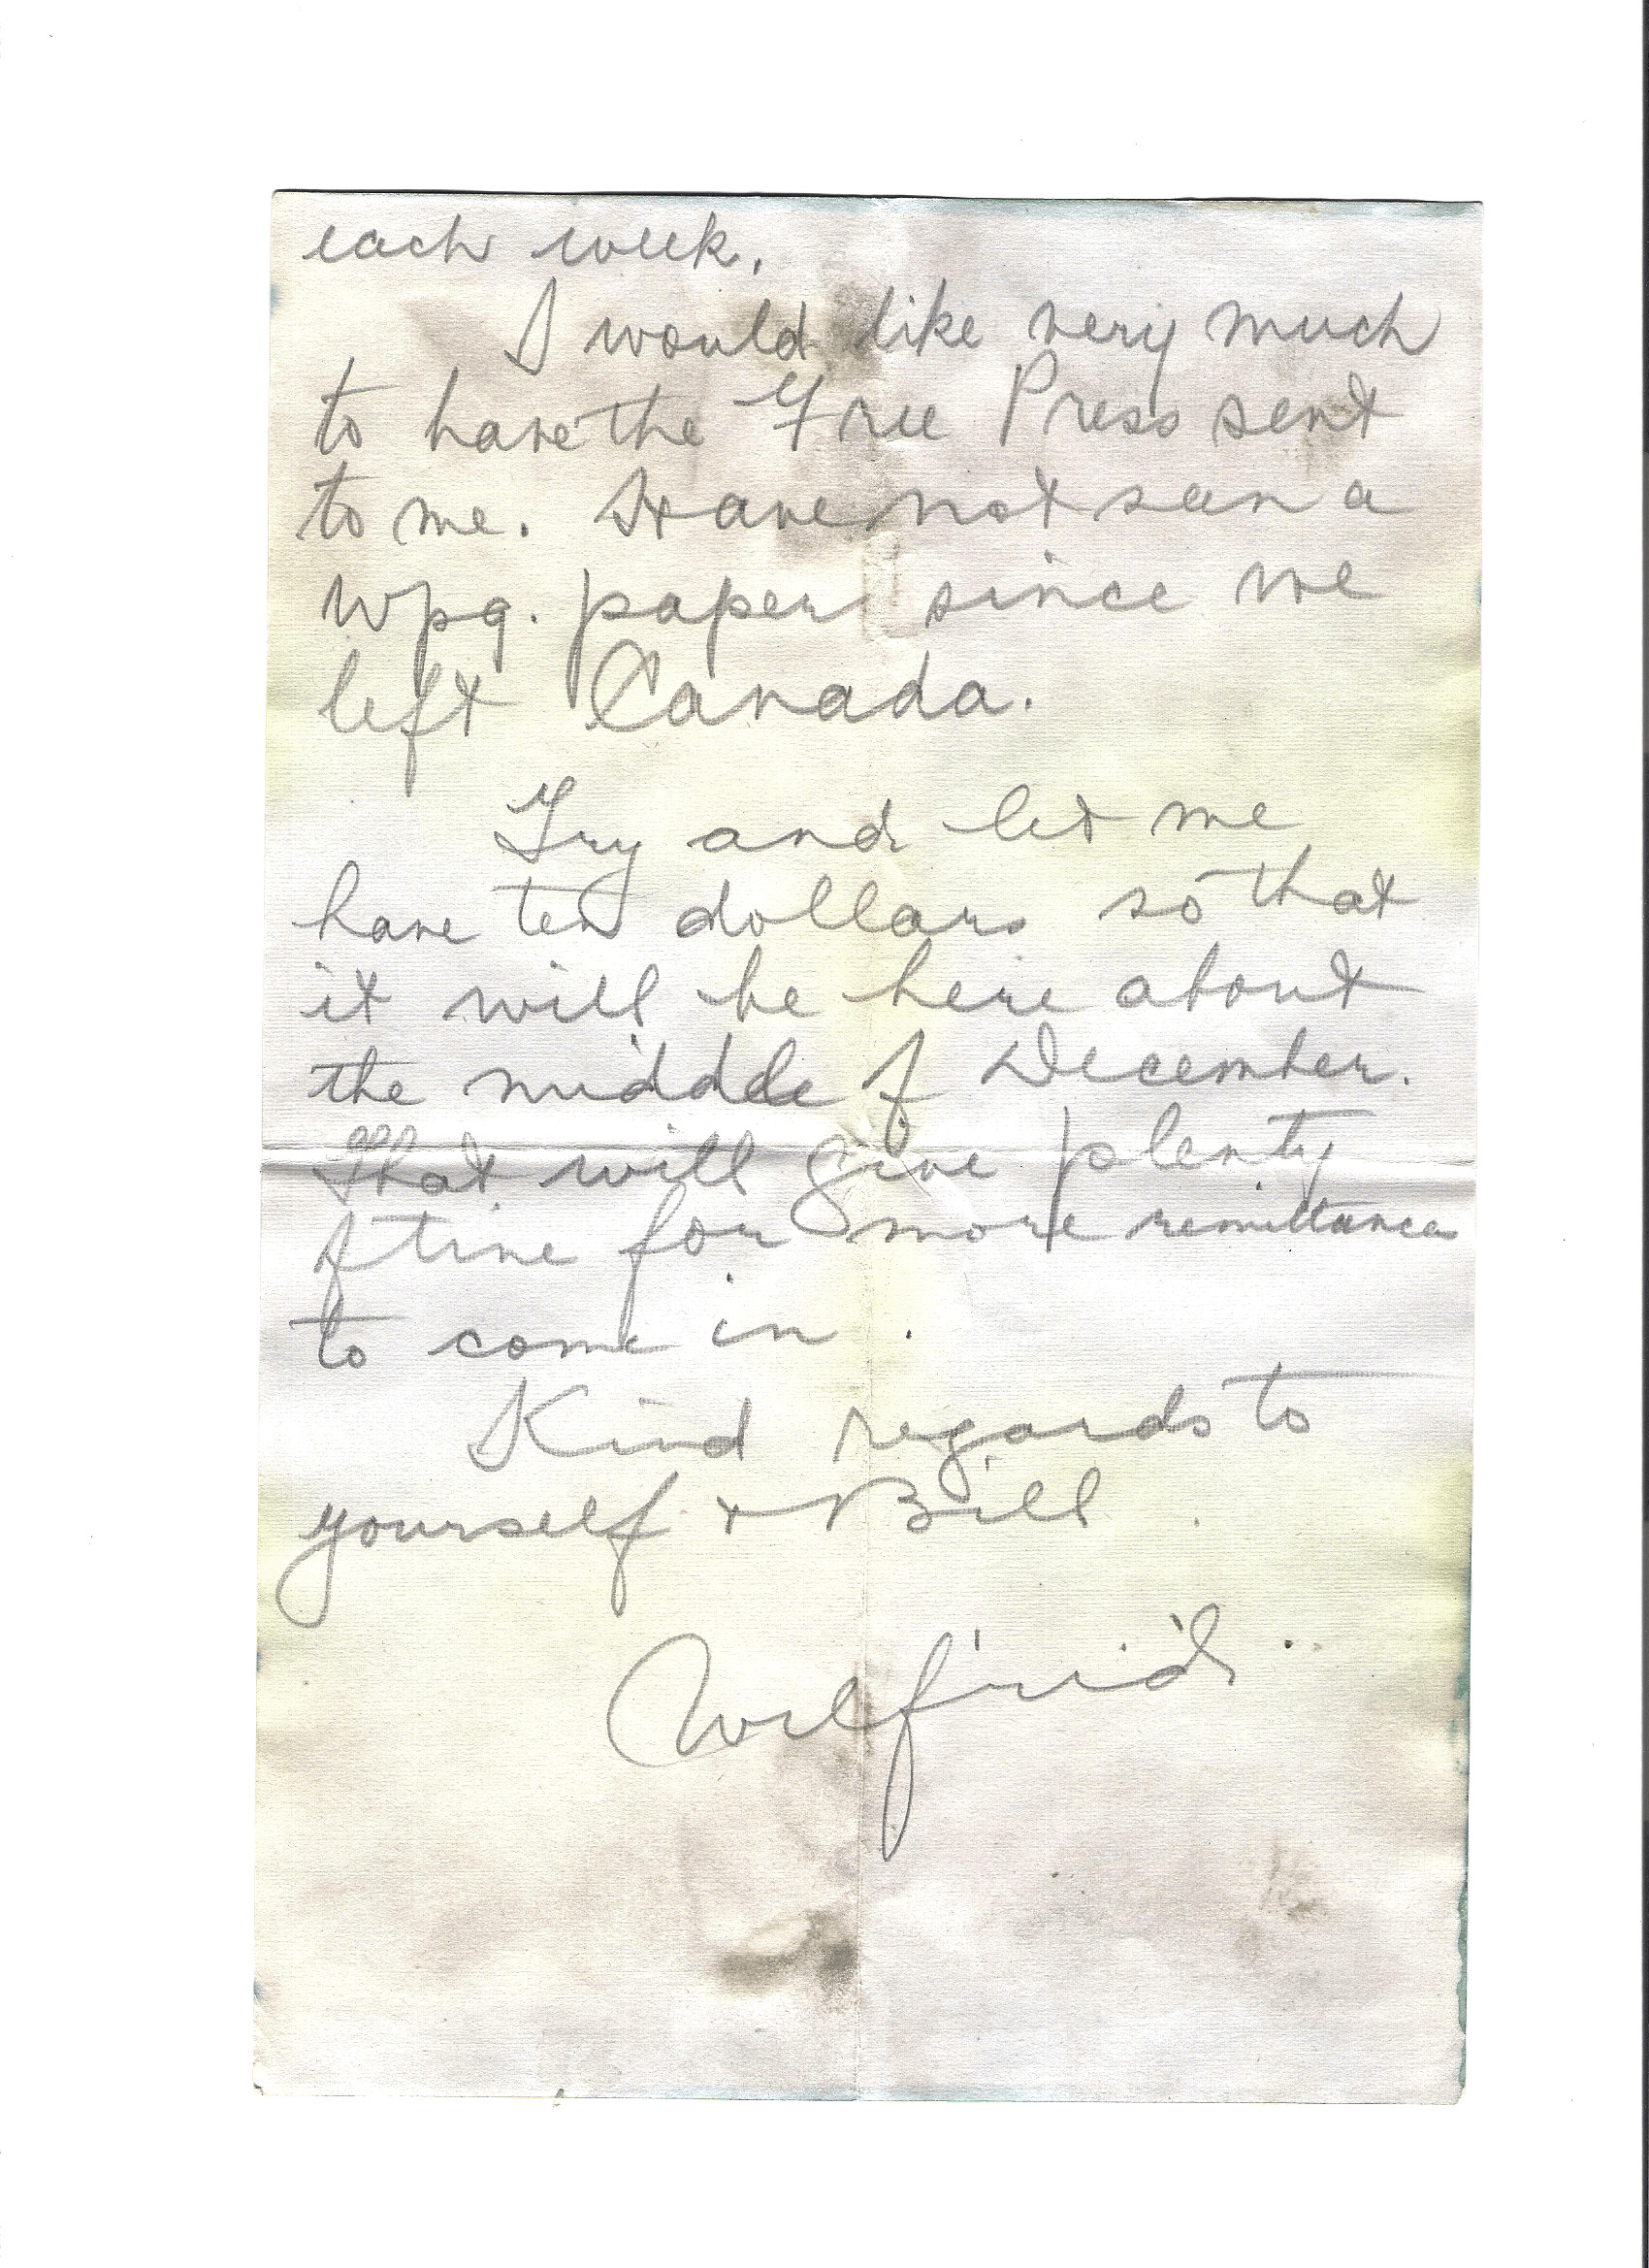 each week.
I would like very much
to have the Free Press sent
to me. Have not seen a
Wpg. paper since we
left Canada.
Try and let me
have ten dollars so that
it will be here about
the middle of December.
That will give plenty
of time for more remittances
to come in.
Kind regards to
yourself + Bill.
Wilfrid.